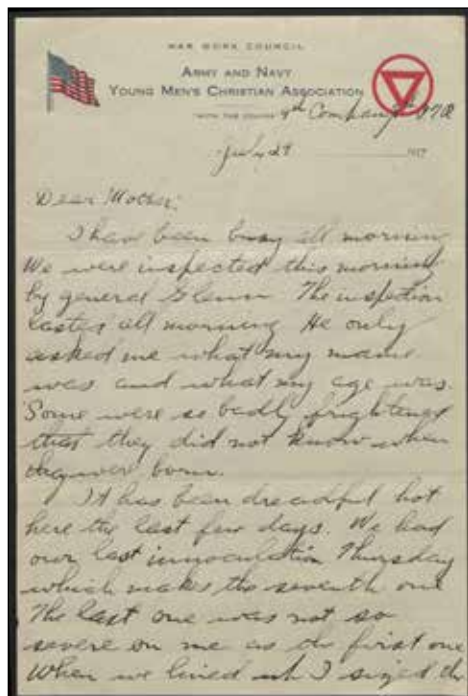 WAR WORK COUNCIL
ARMY AND NAVY
YOUNG MEN'S CHRISTIAN ASSOCIATION
"WITH THE COLORS"
July 29 1917
Dear Mother:
I have been busy all morning
We were inspected this morning
by general Glenn. The inspection
lasted all morning He only
asked me what my name
was and what my age was.
Some were so badly frightened
that they did not know when
they were born.
It has been dreadful hot
here the last few days. We had
our last innoculation Thursday
which makes the seventh one
The last one was not so
severe on me as the first one
When we lined up I sized the